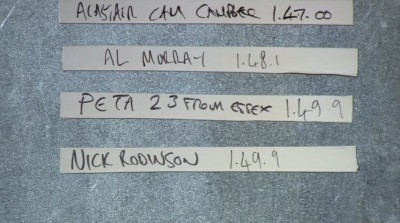 ALASTAIR CAM CAMPBELL 1.47.00
AL MURRAY 1.48.1
PETA 23 FROM ESSEX 1.49.9
NICK ROBINSON 1.49.9